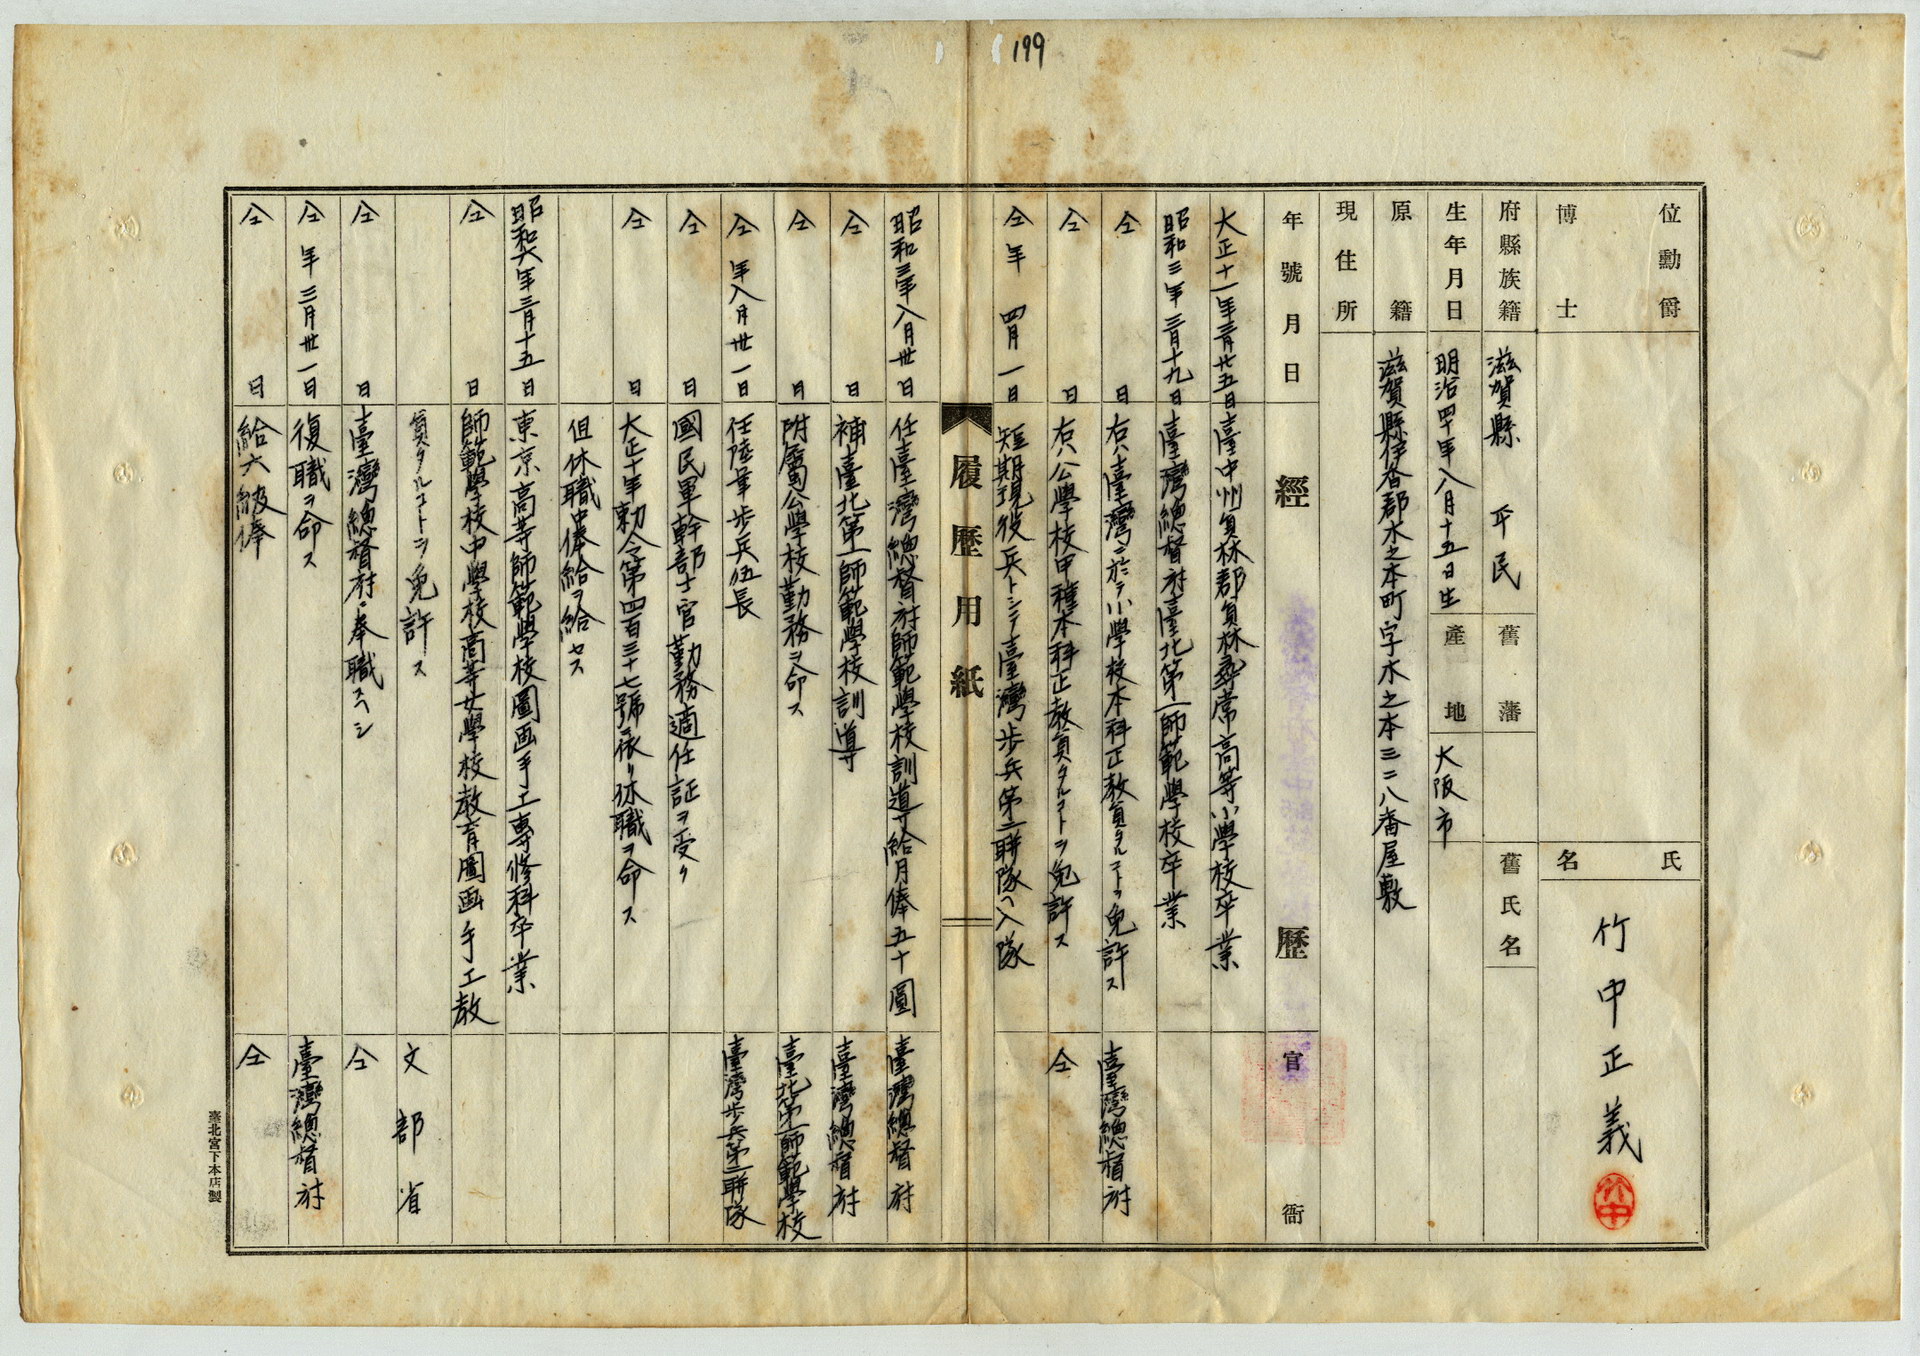 199
位勳爵
博士
氏名
竹中正義
竹中
府縣族籍
滋賀縣 平民
舊藩
舊氏名
生年月日
明治四十年八月十五日生
產地
大阪市
原籍
滋賀縣伊香郡木之本町字木之本三二八番屋敷
現住所
年號月日
經歷
官衙
大正十一年三月廿五日 臺中州員林郡員林尋常高等小學校卒業
昭和三年三月十九日 臺灣總督府臺北第一師範學校卒業
仝 日 右ハ臺灣ニ於テ小學校本科正教員タルコトヲ免許ス 臺灣總督府
仝 日 右ハ公學校甲種本科正教員タルコトヲ免許ス 仝
仝年 四月一日 短期現役兵トシテ臺灣步兵第二聯隊ヘ入隊
履歷用紙
昭和三年八月卅日 任臺灣總督府師範學校訓導 給月俸五十圓 臺灣總督府
仝 日 補臺北第一師範學校訓導 臺灣總督府
仝 日 附屬公學校勤務ヲ命ス 臺北第一師範學校
仝年八月卅一日 任陸軍步兵伍長 臺灣步兵第二聯隊
仝 日 國民軍幹部士官勤務適任証ヲ受ク
仝 日 大正十年勅令第四百三十七號ニ依リ休職ヲ命ス
但休職中俸給ヲ給セス
昭和六年三月十五日 東京高等師範學校圖画手工專修科卒業
仝 日 師範學校中學校高等女學校教育圖画手工教
員タルコトヲ免許ス 文部省
仝 日 臺灣總督府ニ奉職スヘシ 仝
仝年三月卅一日 復職ヲ命ス 臺灣總督府
仝 日 給六級俸 仝
臺北宮下本店製